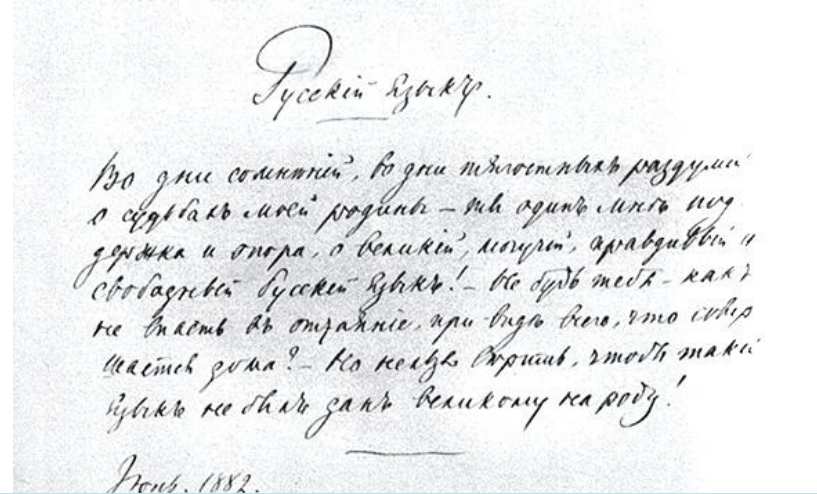 Русскій языкъ.
Во дни сомнѣній, во дни тягостныхъ раздумій
о судьбахъ моей родины – ты одинъ мнѣ под
держка и опора, о великій, могучій, правдивый и
свободный Русскій языкъ! – Не будь тебя – какъ
не впасть въ отчаяніе, при видѣ всего, что совер
шается дома? – Но нельзя вѣрить, чтобы такой
языкъ не былъ данъ великому народу!
Іюнь. 1882.